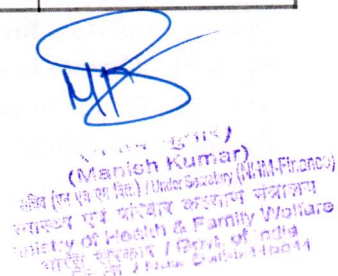 कुमार)
(Manish Kumar)
/ Under Secretary (NHM-Finance)
स्वास्थ्य एवं परिवार कल्याण मंत्रालय
Ministry of Health & Family Welfare
भारत सरकार / Govt. of India
/ New Delhi-110011